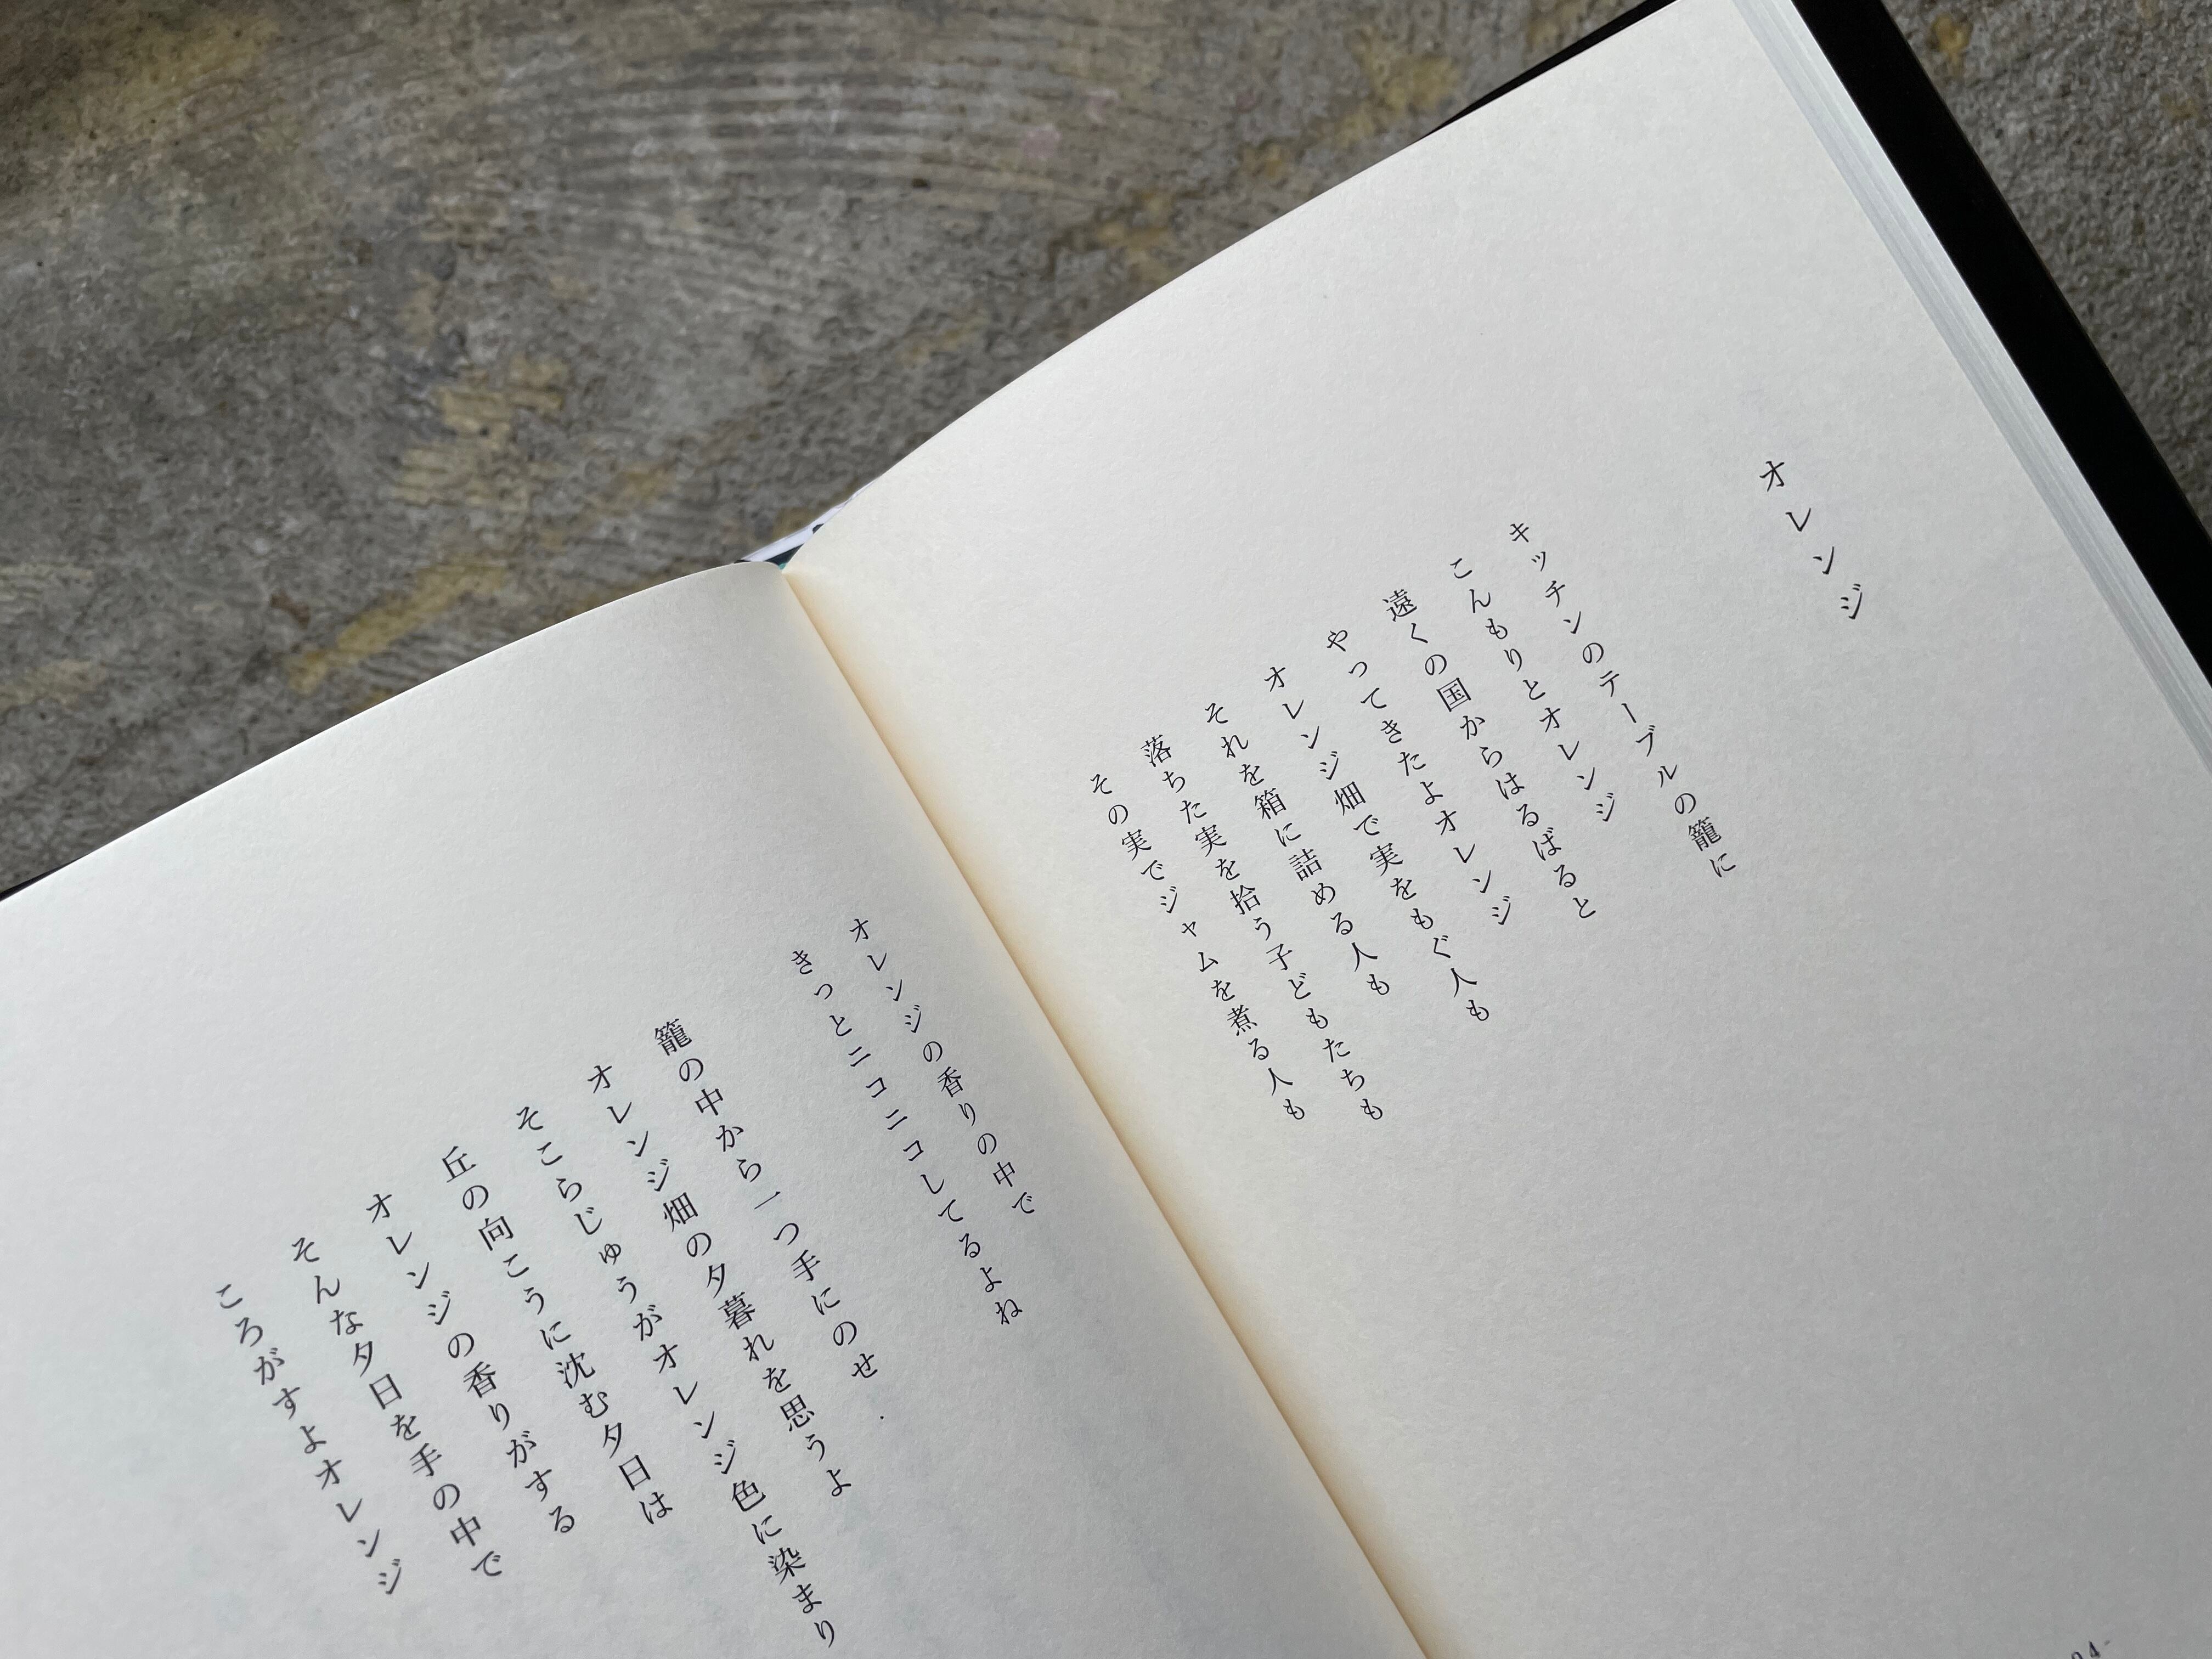 オレンジ
キッチンのテーブルの籠に
こんもりとオレンジ
遠くの国からはるばると
やってきたよオレンジ
オレンジ畑で実をもぐ人も
それを箱に詰める人も
落ちた実を拾う子どもたちも
その実でジャムを煮る人も
オレンジの香りの中で
きっとニコニコしてるよね
籠の中から一つ手にのせ
オレンジ畑の夕暮れを思うよ
そこらじゅうがオレンジ色に染まり
丘の向こうに沈む夕日は
オレンジの香りがする
そんな夕日を手の中で
ころがすよオレンジ